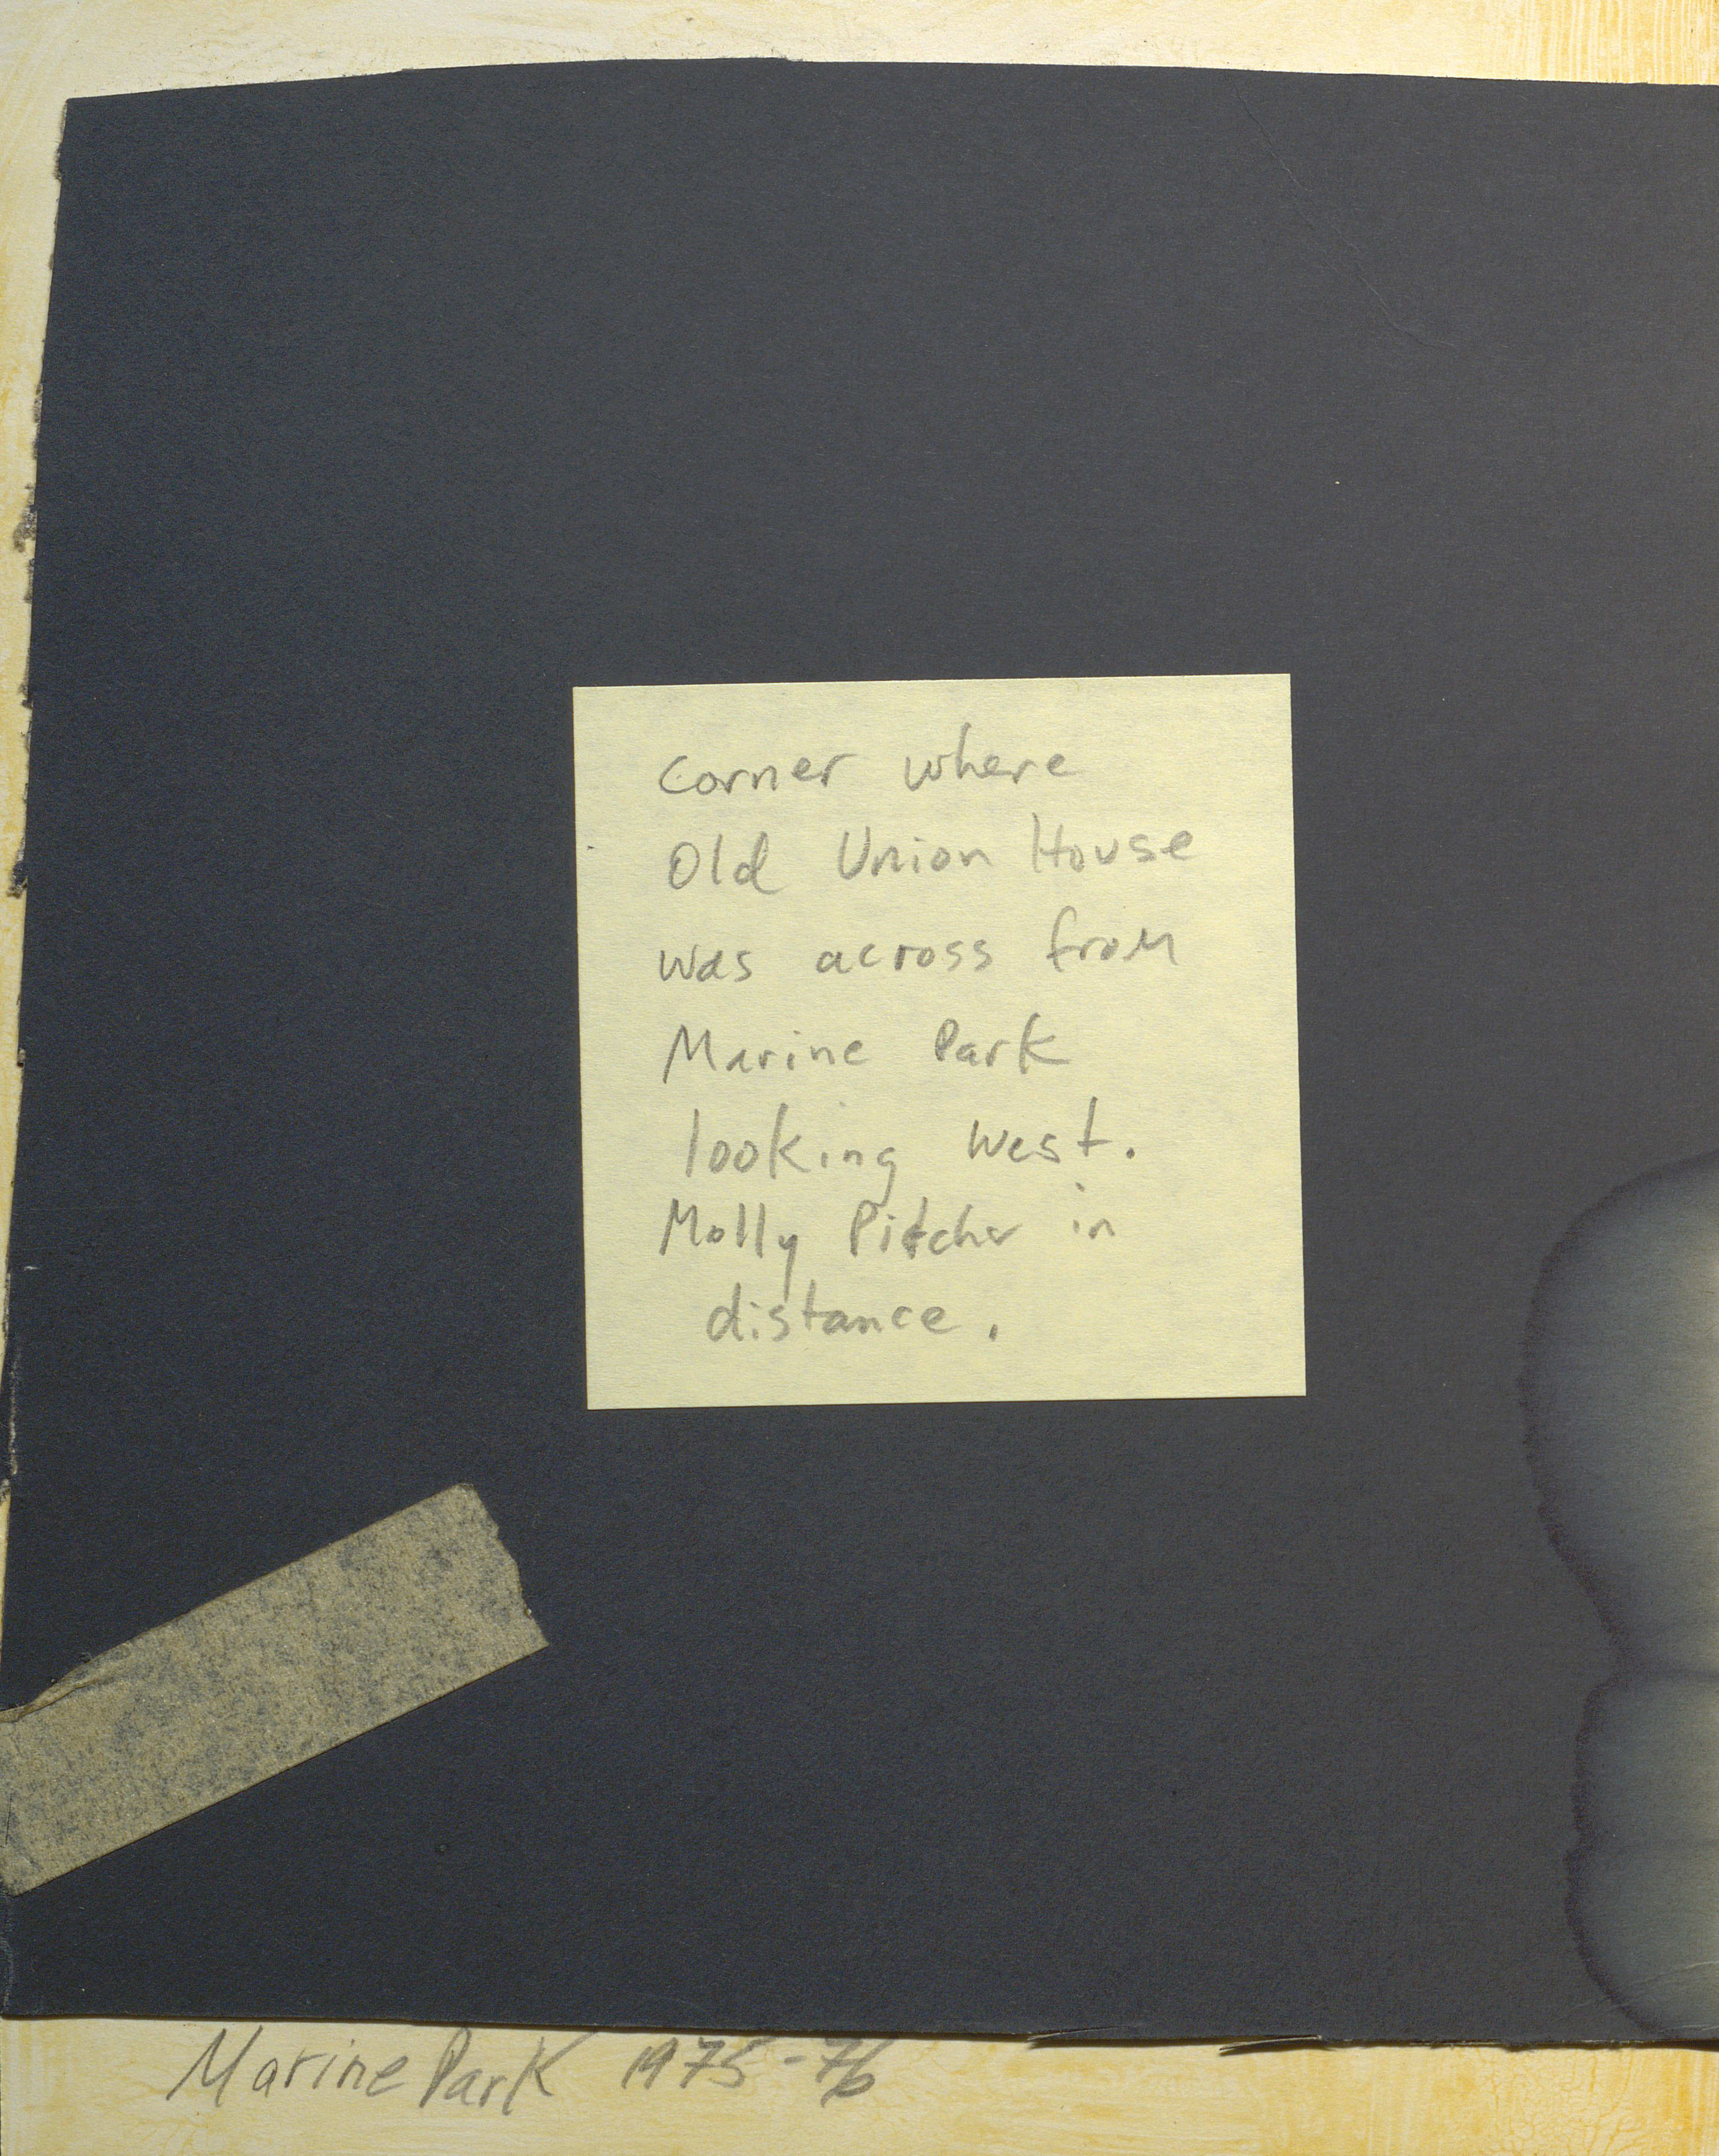 Corner where
Old Union House
was across from
Marine Park
looking West.
Molly Pitcher in
distance.
Marine Park 1975-76